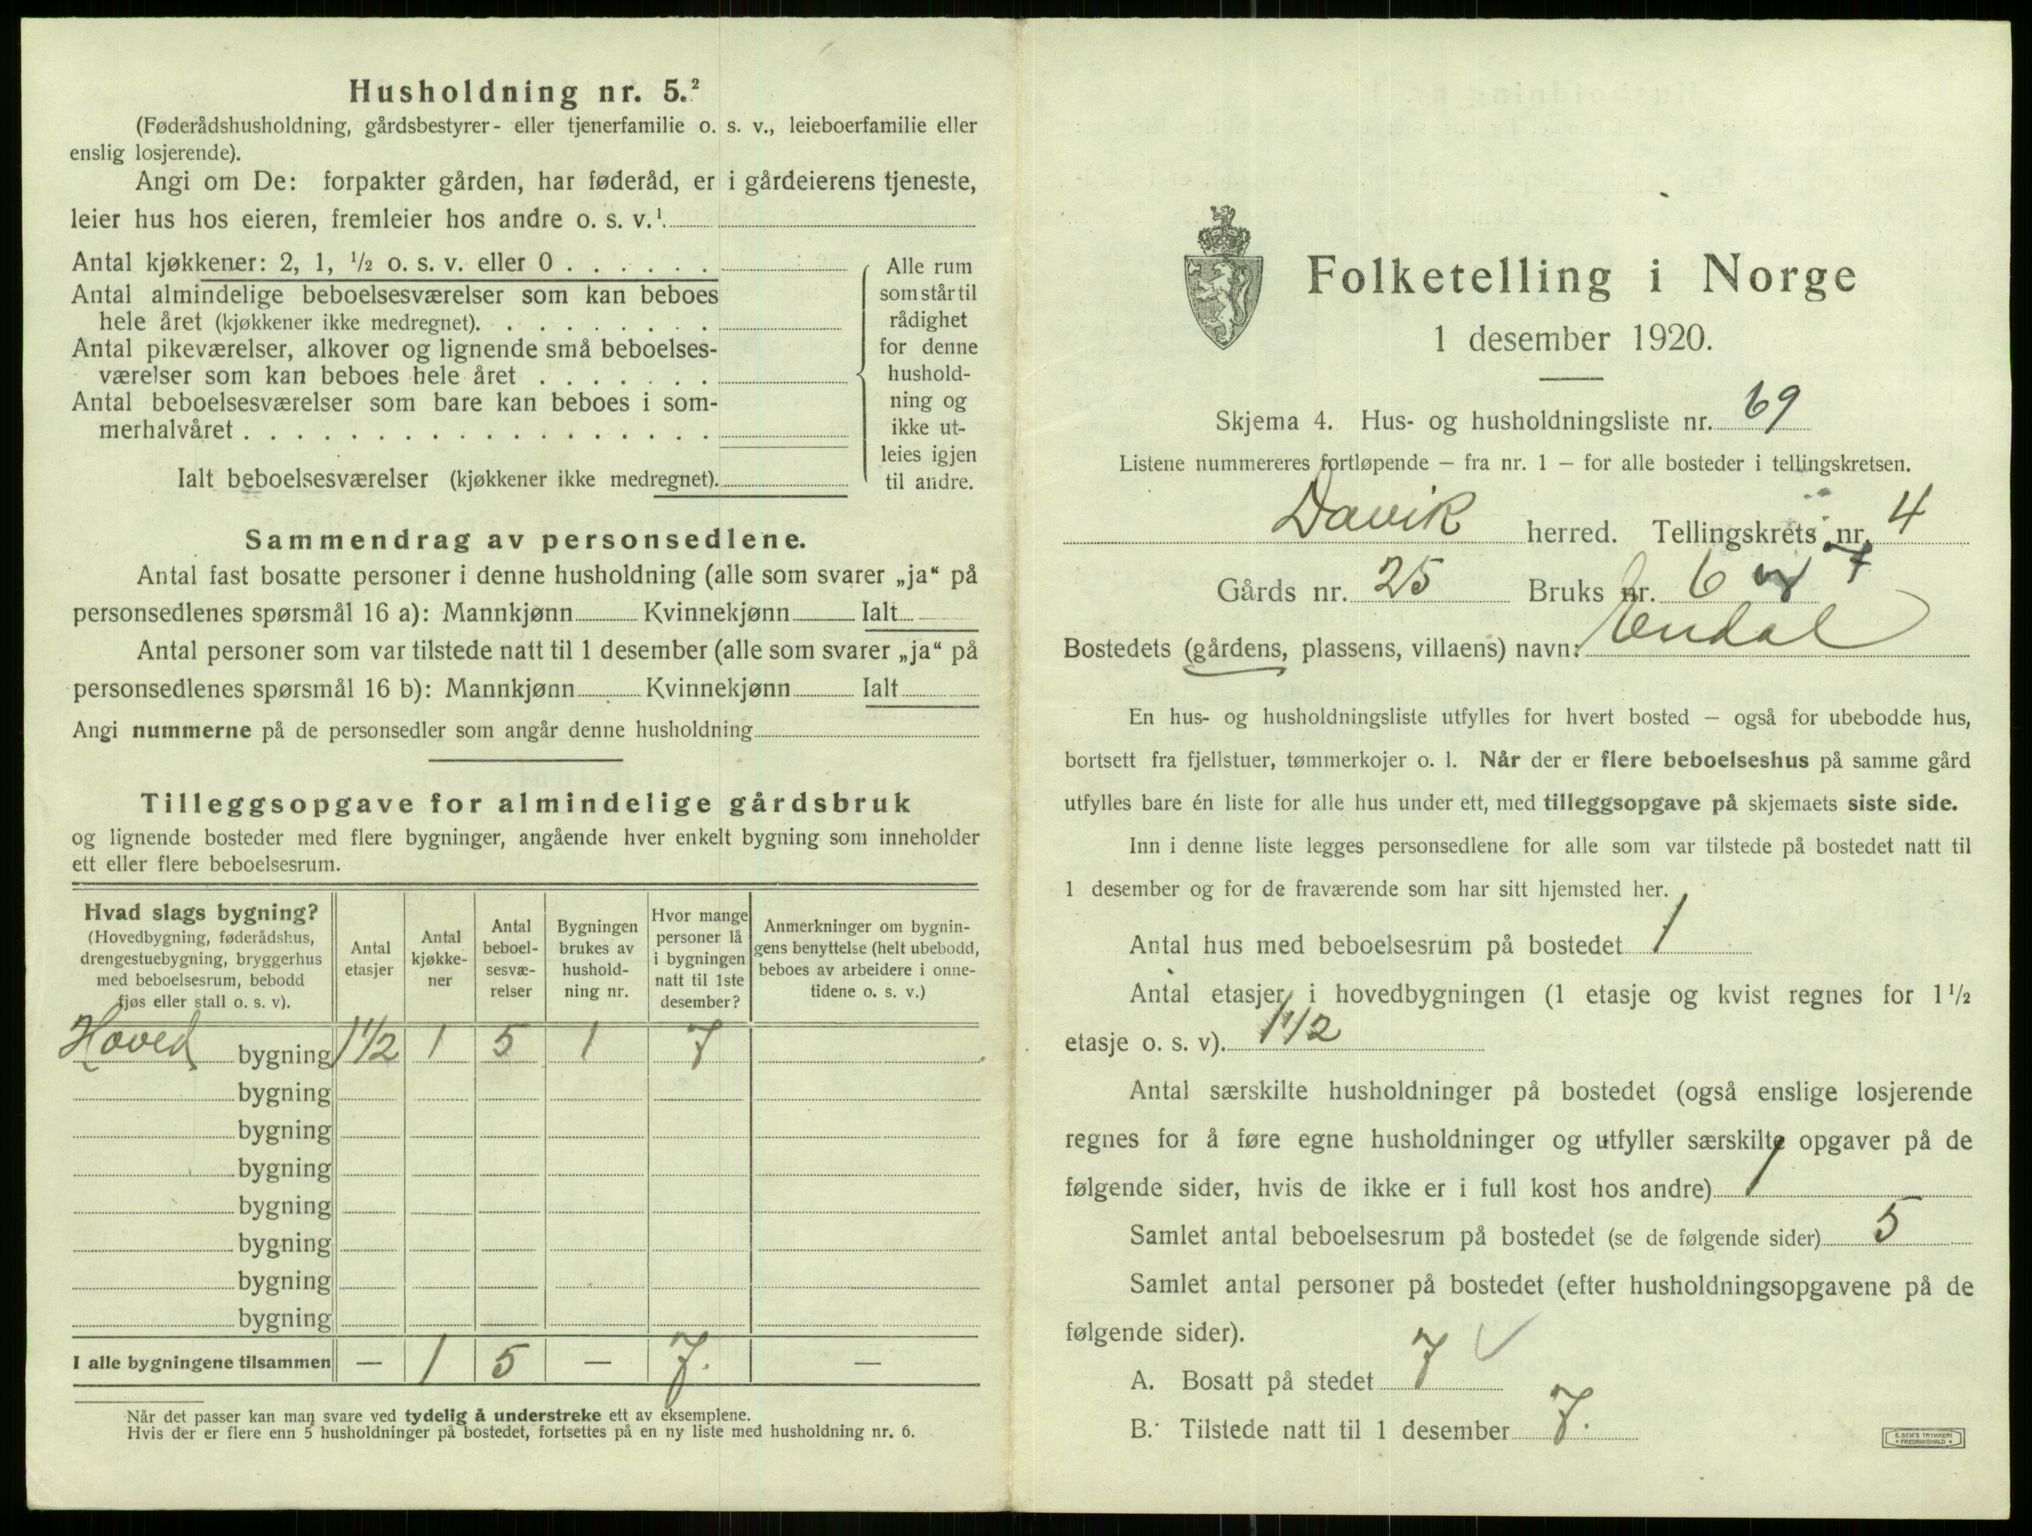 Husholdning nr. 5.²
(Føderådshusholdning, gårdsbestyrer- eller tjenerfamilie o. s. v., leieboerfamilie eller
enslig losjerende).
Angi om De: forpakter gården, har føderåd, er i gårdeierens tjeneste,
leier hus hos eieren, fremleier hos andre o. s. v.¹
Antal kjøkkener: 2, 1, ½ o. s. v. eller 0 . . . . . .
Antal almindelige beboelsesværelser som kan beboes
hele året (kjøkkener ikke medregnet). . . . . . . . .
Antal pikeværelser, alkover og lignende små beboelses-
værelser som kan beboes hele året . . . . . . .
Antal beboelsesværelser som bare kan beboes i som-
merhalvåret . . . . . . . . . . . . . . . . . .
Ialt beboelsesværelser (kjøkkener ikke medregnet).
Alle rum
som står til
rådighet
for denne
hushold-
ning og
ikke ut-
leies igjen
til andre.
Sammendrag av personsedlene.
Antal fast bosatte personer i denne husholdning (alle som svarer „ja“ på
personsedlenes spørsmål 16 a): Mannkjønn Kvinnekjønn Ialt
Antal personer som var tilstede natt til 1 desember (alle som svarer „ja“ på
personsedlenes spørsmål 16 b): Mannkjønn Kvinnekjønn Ialt
Angi nummerne på de personsedler som angår denne husholdning
Tilleggsopgave for almindelige gårdsbruk
og lignende bosteder med flere bygninger, angående hver enkelt bygning som inneholder
ett eller flere beboelsesrum.
Hvad slags bygning?
(Hovedbygning, føderådshus,
drengestuebygning, bryggerhus
med beboelsesrum, bebodd
fjøs eller stall o. s. v).
Antal
etasjer
Antal
kjøkke-
ner
Antal
beboel-
sesvæ-
relser
Bygningen
brukes av
hushold-
ning nr.
Hvor mange
personer lå
i bygningen
natt til 1ste
desember?
Anmerkninger om bygnin-
gens benyttelse (helt ubebodd,
beboes av arbeidere i onne-
tidene o. s. v.)
Hoved bygning 1 1/2 1 5 1 7
bygning
bygning
bygning
bygning
bygning
bygning
bygning
I alle bygningene tilsammen — 1 5 — 7. —
Når det passer kan man svare ved tydelig å understreke ett av eksemplene.
Hvis der er flere enn 5 husholdninger på bostedet, fortsettes på en ny liste med husholdning nr. 6.
Folketelling i Norge
1 desember 1920.
Skjema 4. Hus- og husholdningsliste nr. 69
Listene nummereres fortløpende – fra nr. 1 – for alle bosteder i tellingskretsen.
Davik herred. Tellingskrets nr. 4
Gårds nr. 25 Bruks nr. 6 og 7
Bostedets (gårdens, plassens, villaens) navn: Endal
En hus- og husholdningsliste utfylles for hvert bosted – også for ubebodde hus,
bortsett fra fjellstuer, tømmerkojer o. l. Når der er flere beboelseshus på samme gård
utfylles bare én liste for alle hus under ett, med tilleggsopgave på skjemaets siste side.
Inn i denne liste legges personsedlene for alle som var tilstede på bostedet natt til
1 desember og for de fraværende som har sitt hjemsted her.
Antal hus med beboelsesrum på bostedet 1
Antal etasjer i hovedbygningen (1 etasje og kvist regnes for 1½
etasje o. s. v). 1 1/2
Antal særskilte husholdninger på bostedet (også enslige losjerende
regnes for å føre egne husholdninger og utfyller særskilte opgaver på de
følgende sider, hvis de ikke er i full kost hos andre) 1
Samlet antal beboelsesrum på bostedet (se de følgende sider) 5
Samlet antal personer på bostedet (efter husholdningsopgavene på de
følgende sider).
A. Bosatt på stedet 7 ✓
B. Tilstede natt til 1 desember 7.
E. SEM'S TRYKKERI
FREDRIKSHALD